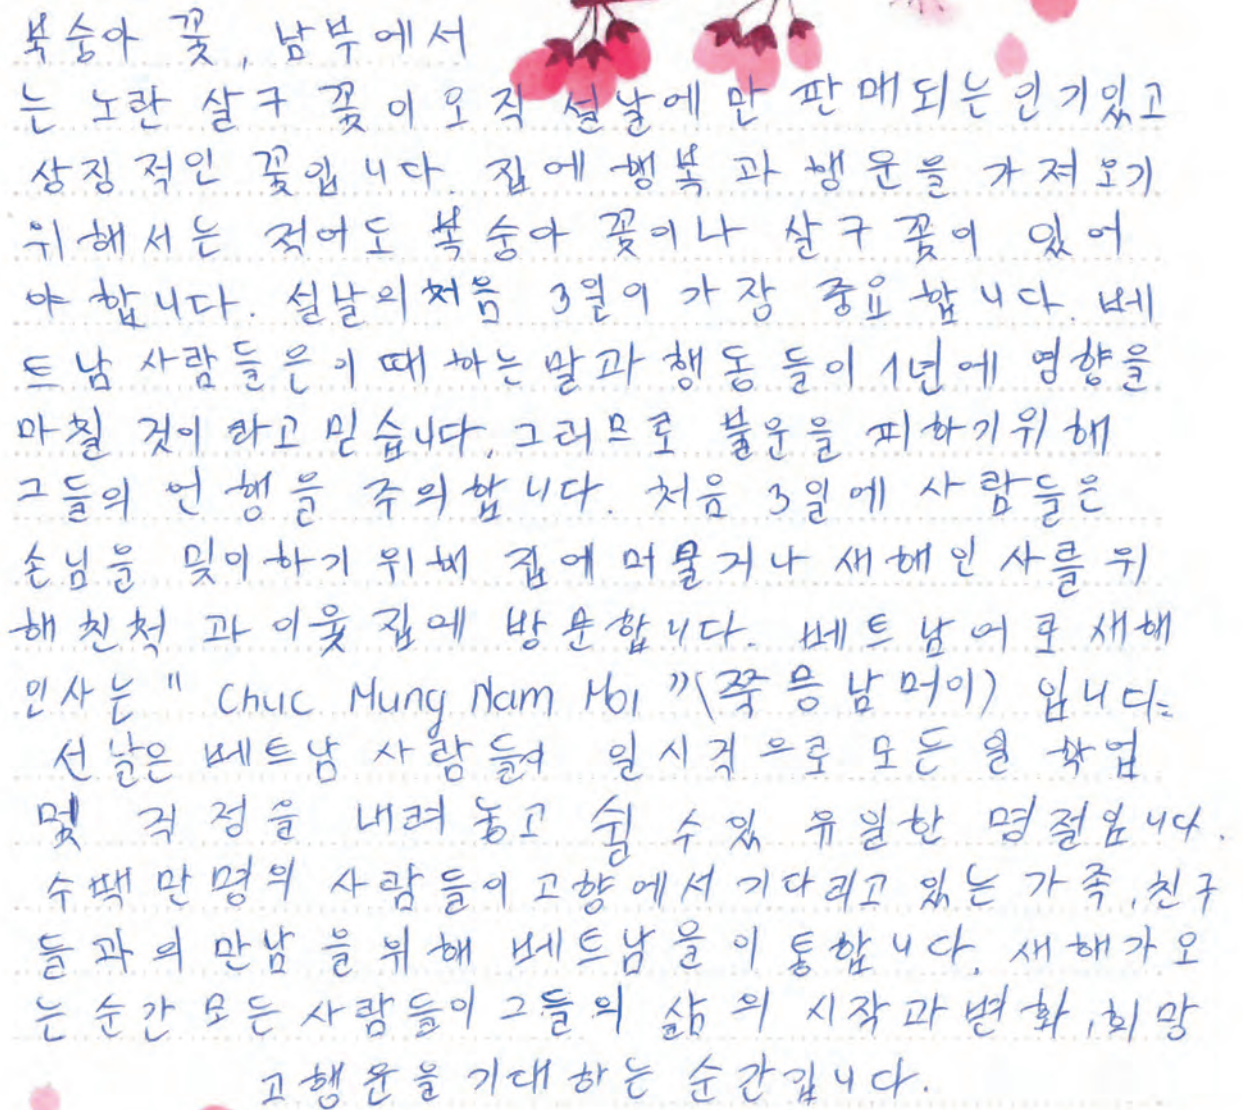 복숭아 꽃, 남부에서
는 노란 살구 꽃이 오직 설날에만 판매되는 인기있고
상징적인 꽃입니다. 집에 행복과 행운을 가져오기
위해서는 적어도 복숭아 꽃이나 살구 꽃이 있어
야 합니다. 설날의 처음 3일이 가장 중요합니다. 베
트남 사람들은 이 때 하는 말과 행동들이 1년에 영향을
마칠 것이라고 믿습니다. 그러므로 불운을 피하기위해
그들의 언행을 주의합니다. 처음 3일에 사람들은
손님을 맞이하기 위해 집에 머물거나 새해인사를 위
해 친척과 이웃집에 방문합니다. 베트남어로 새해
인사는 " Chuc Mung Nam Moi "(쭉 믕 남 머이) 입니다.
선날은 베트남 사람들이 일시적으로 모든 일 학업
및 걱정을 내려 놓고 쉴 수 있 유일한 명절입니다.
수백만명의 사람들이 고향에서 기다리고 있는 가족, 친구
들과의 만남을 위해 베트남을 이통합니다. 새해가 오
는 순간 모든 사람들이 그들의 삶의 시작과 변화, 희망
고 행운을 기대하는 순간입니다.